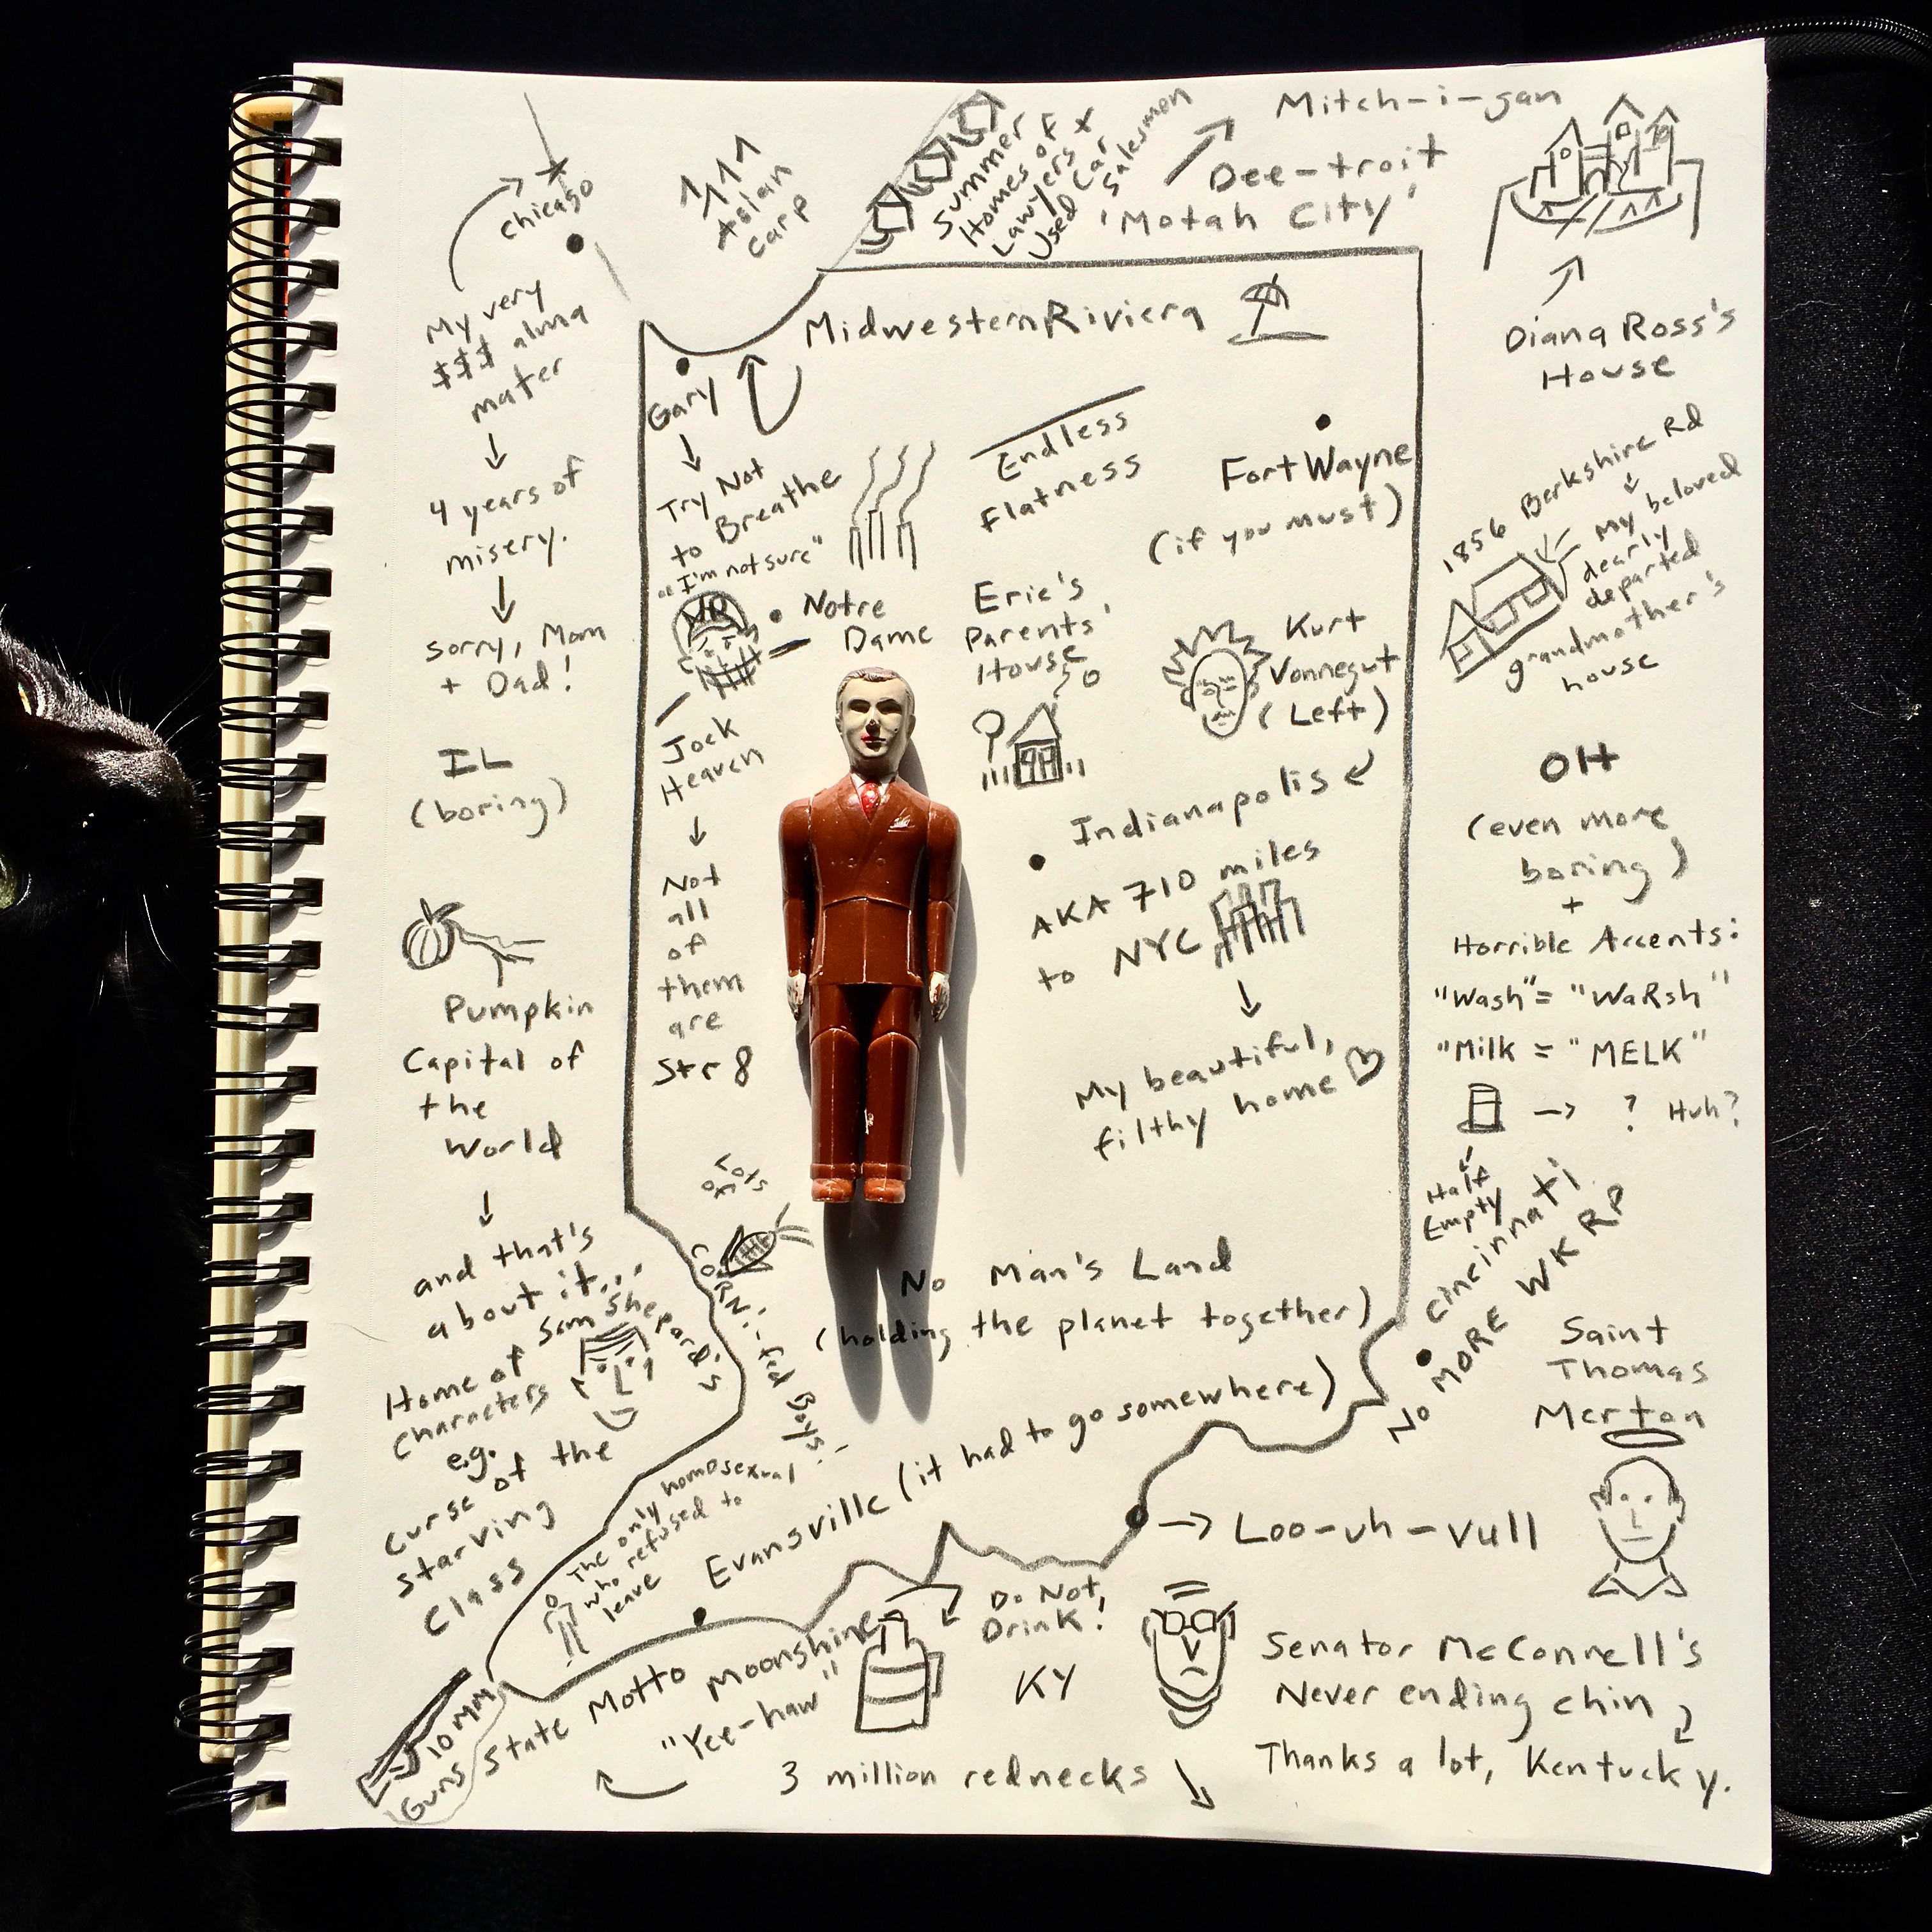 Chicago
My very
$$$ alma
mater
4 years of
misery.
Sorry, Mom
+ Dad!
IL
(boring)
Pumpkin
Capital of
the
World
and that's
about it...
Home of Sam Shepard's
characters
e.g.
Curse of the
Starving
Class
Asian
Carp
Summer
Homes of
Lawyers +
Used Car
Salesmen
Mitch-i-gan
Dee-troit
'Motah City'
Diana Ross's
House
Midwestern Riviera
Gary
Try Not
to Breathe
Endless
Flatness
Fort Wayne
(if you must)
"I'm not sure"
Notre
Dame
Jock
Heaven
Not
all
of
them
are
Str8
Eric's
Parents'
House
Kurt
Vonnegut
(Left)
Indianapolis
AKA 710 miles
to NYC
My beautiful,
filthy home
Lots
of
CORN!-fed Boys!
No Man's Land
(holding the planet together)
The only homosexual
who refused to
leave
Evansville (it had to go somewhere)
1856 Berkshire Rd
My beloved
dearly
departed
grandmother's
house
OH
(even more
boring)
+
Horrible Accents:
"Wash" = "WaRsh"
"Milk = "MELK"
? Huh?
Half
Empty
Cincinnati
NO MORE WKRP
Saint
Thomas
Merton
Loo-uh-vull
10 MM
Guns
State Motto
"Yee-haw"
Moonshine
Do Not
Drink!
KY
3 million rednecks
Senator McConnell's
Never ending chin
Thanks a lot, Kentucky.